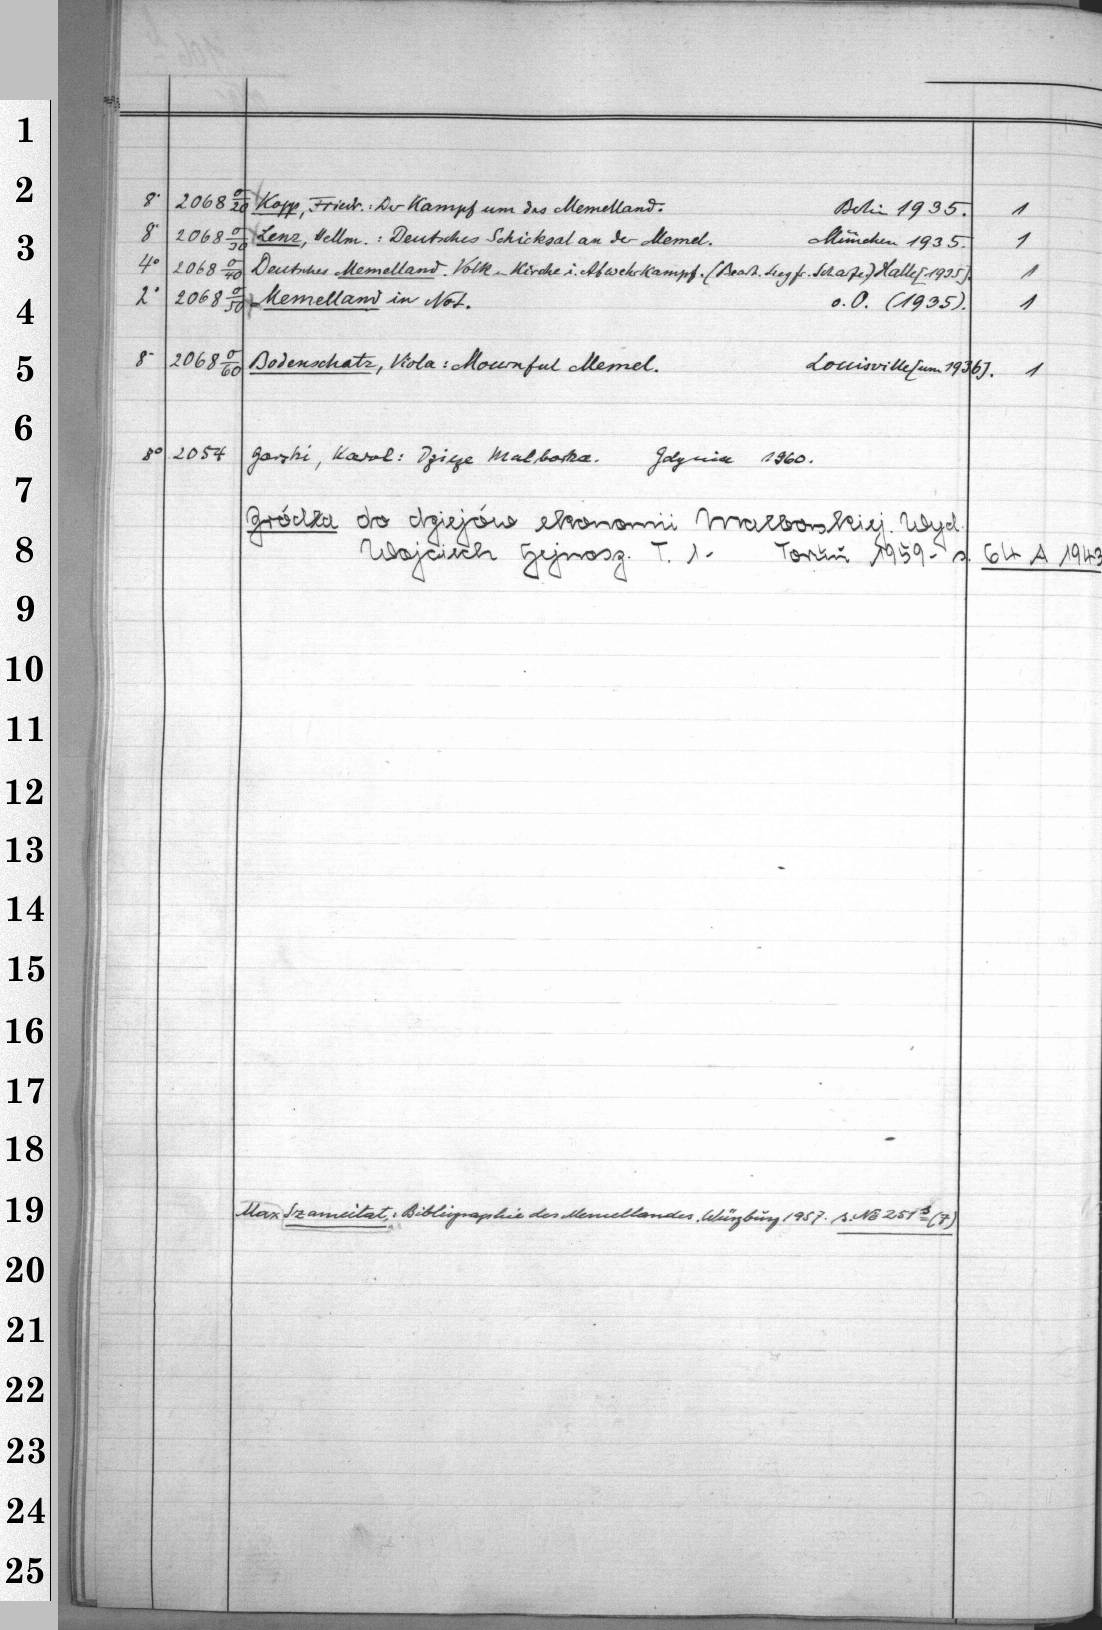 1
2
8° 2068 σ/20 Kopp, Friedr.: Der Kampf um das Memelland. Berlin 1935. 1
3
8° 2068 σ/30 Lenz, Wellm.: Deutsches Schicksal an der Memel. München 1935. 1
4° 2068 σ/40 Deutsches Memelland. Volk u. Kirche i. Abwehrkampf. (Bearb. Siegfr. Scharfe) Halle [1935]. 1
4
2° 2068 σ/50 Memelland in Not. o. O. (1935). 1
5
8° 2068 σ/60 Bodenschatz, Viola: Mournful Memel. Louisville [um 1936]. 1
6
8° 2054 Gorski, Karol: Dzieje Malborka. Gdynia 1960.
7
Źródła do dziejów ekonomii Malborskiej. Wyd.
8
Wojciech Hejnosz. T. 1- Toruń 1959- s. 64 A 1943
9
10
11
12
13
14
15
16
17
18
19
Max Szameitat: Bibliographie des Memellandes. Würzburg 1957. s. NB 251 s (7)
20
21
22
23
24
25